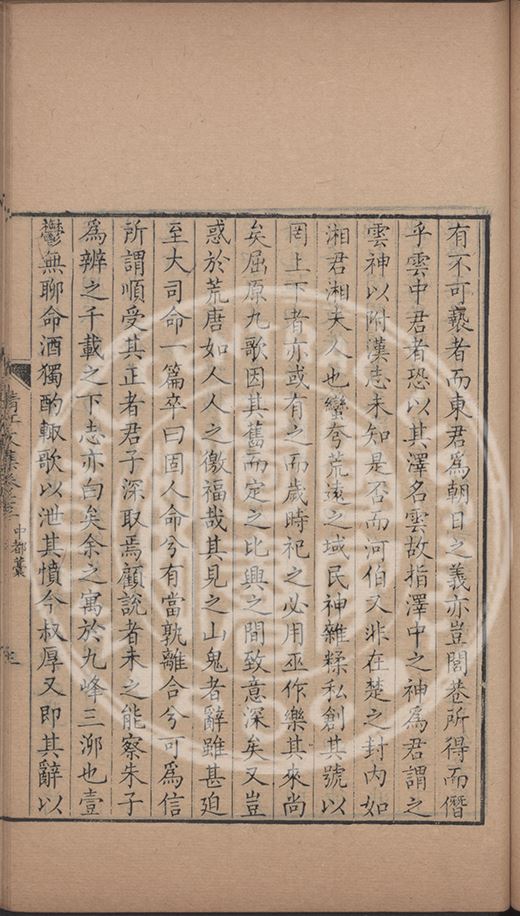 有不可褻者而東君爲朝日之義亦豈閭巷所得而僭
乎雲中君者恐以其澤名雲故指澤中之神爲君謂之
雲神以附漢志未知是否而河伯又非在楚之封内如
湘君湘夫人也蠻夸荒遠之域民神雜糅私創其號以
罔上下者亦或有之而歲時祀之必用巫作樂其來尚
矣屈原九歌因其舊而定之比興之間致意深矣又豈
惑於荒唐如人人之徼福哉其見之山鬼者辭雖甚迫
至大司命一篇卒曰固人命兮有當孰離合兮可爲信
所謂順受其正者君子深取焉顧說者未之能察朱子
為辨之千載之下志亦白矣余之寓於九峰三泖也壹
鬱無聊命酒獨酌輒歌以泄其憤今叔厚又即其辭以
清江文集卷
中都藁